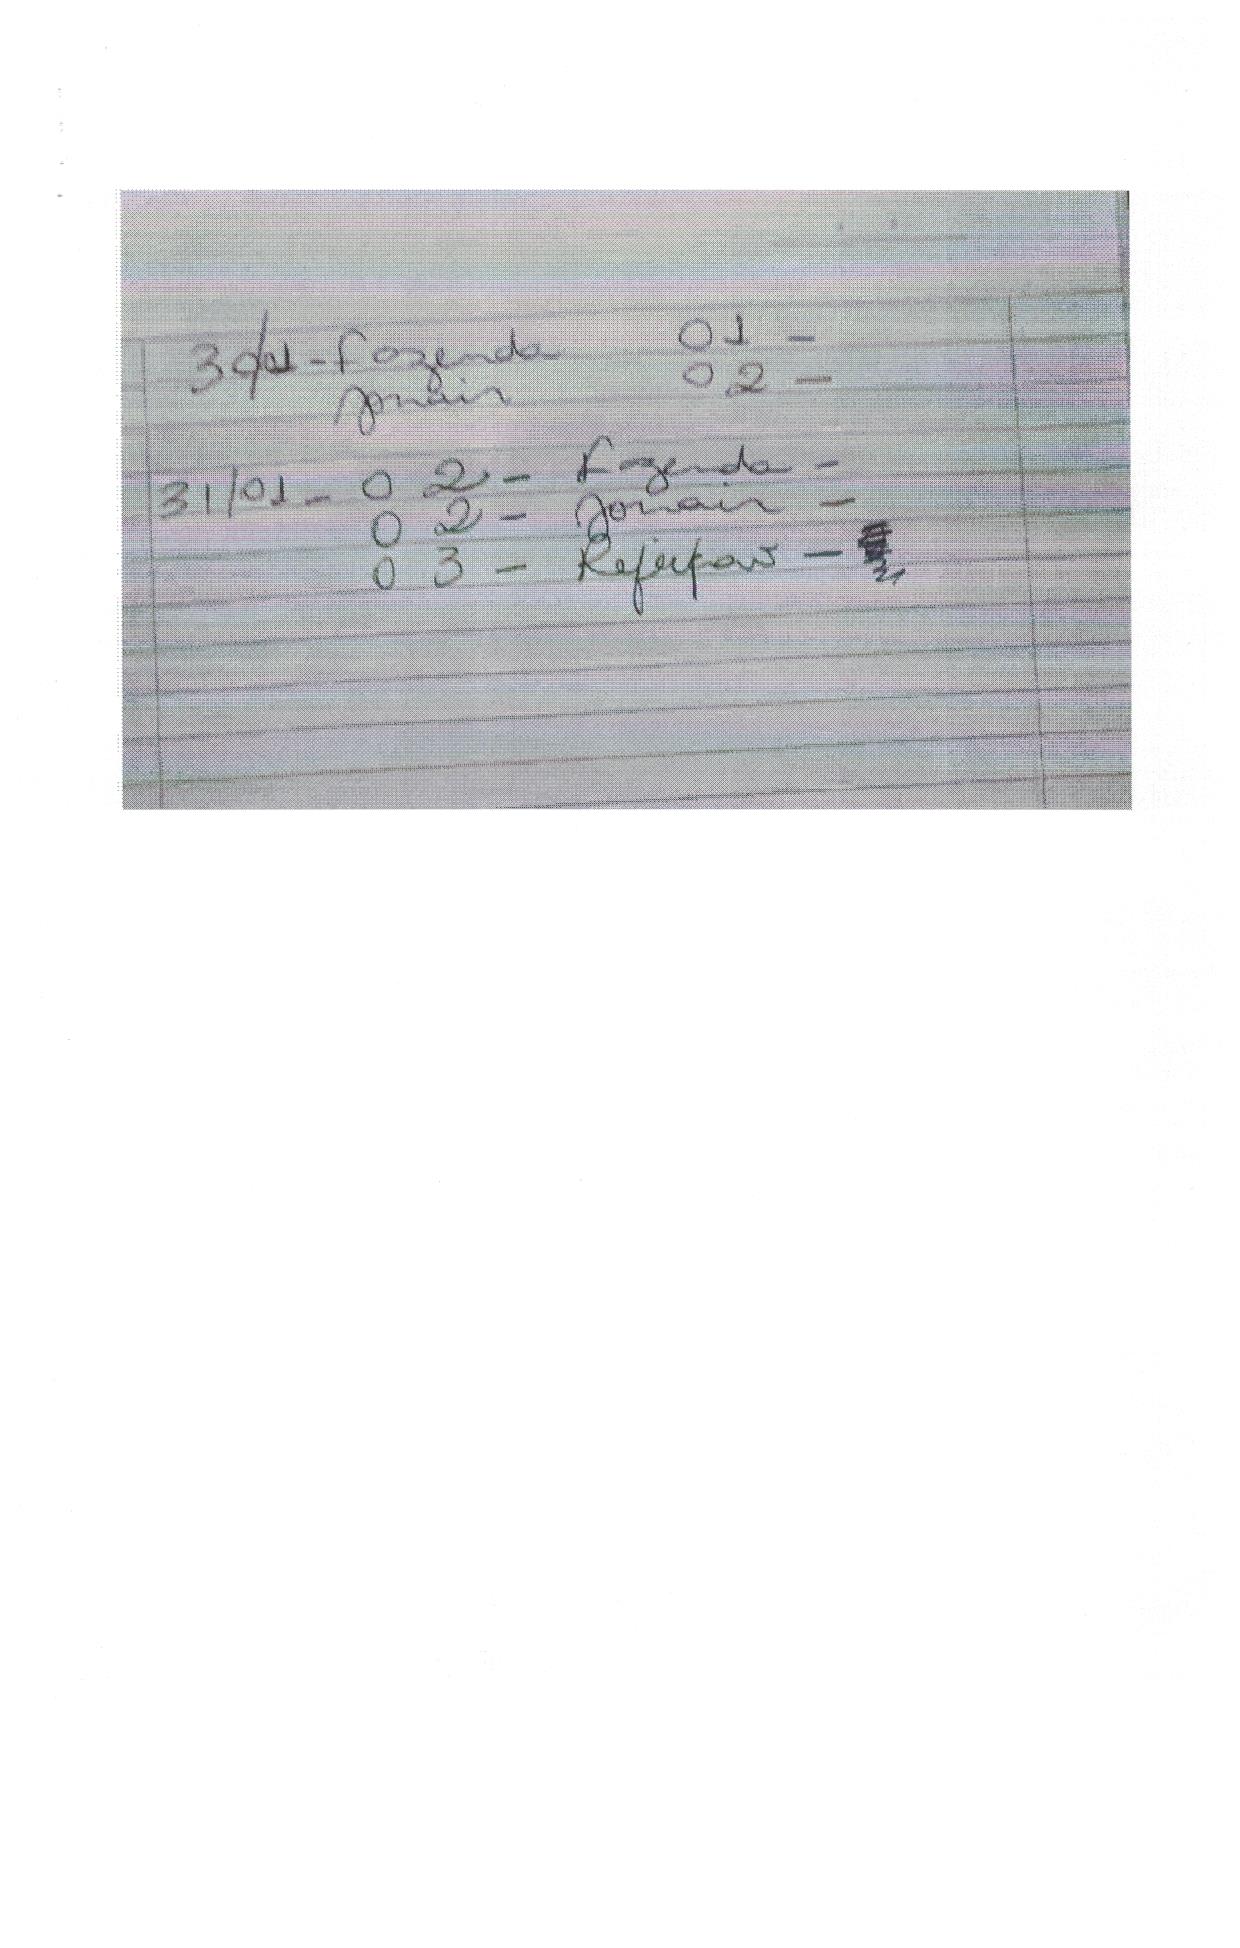 30/01 - Fazenda 01 -
Jomair 02 -
31/01 - 02 - Fazenda -
02 - Jomair -
03 - Refeipav -